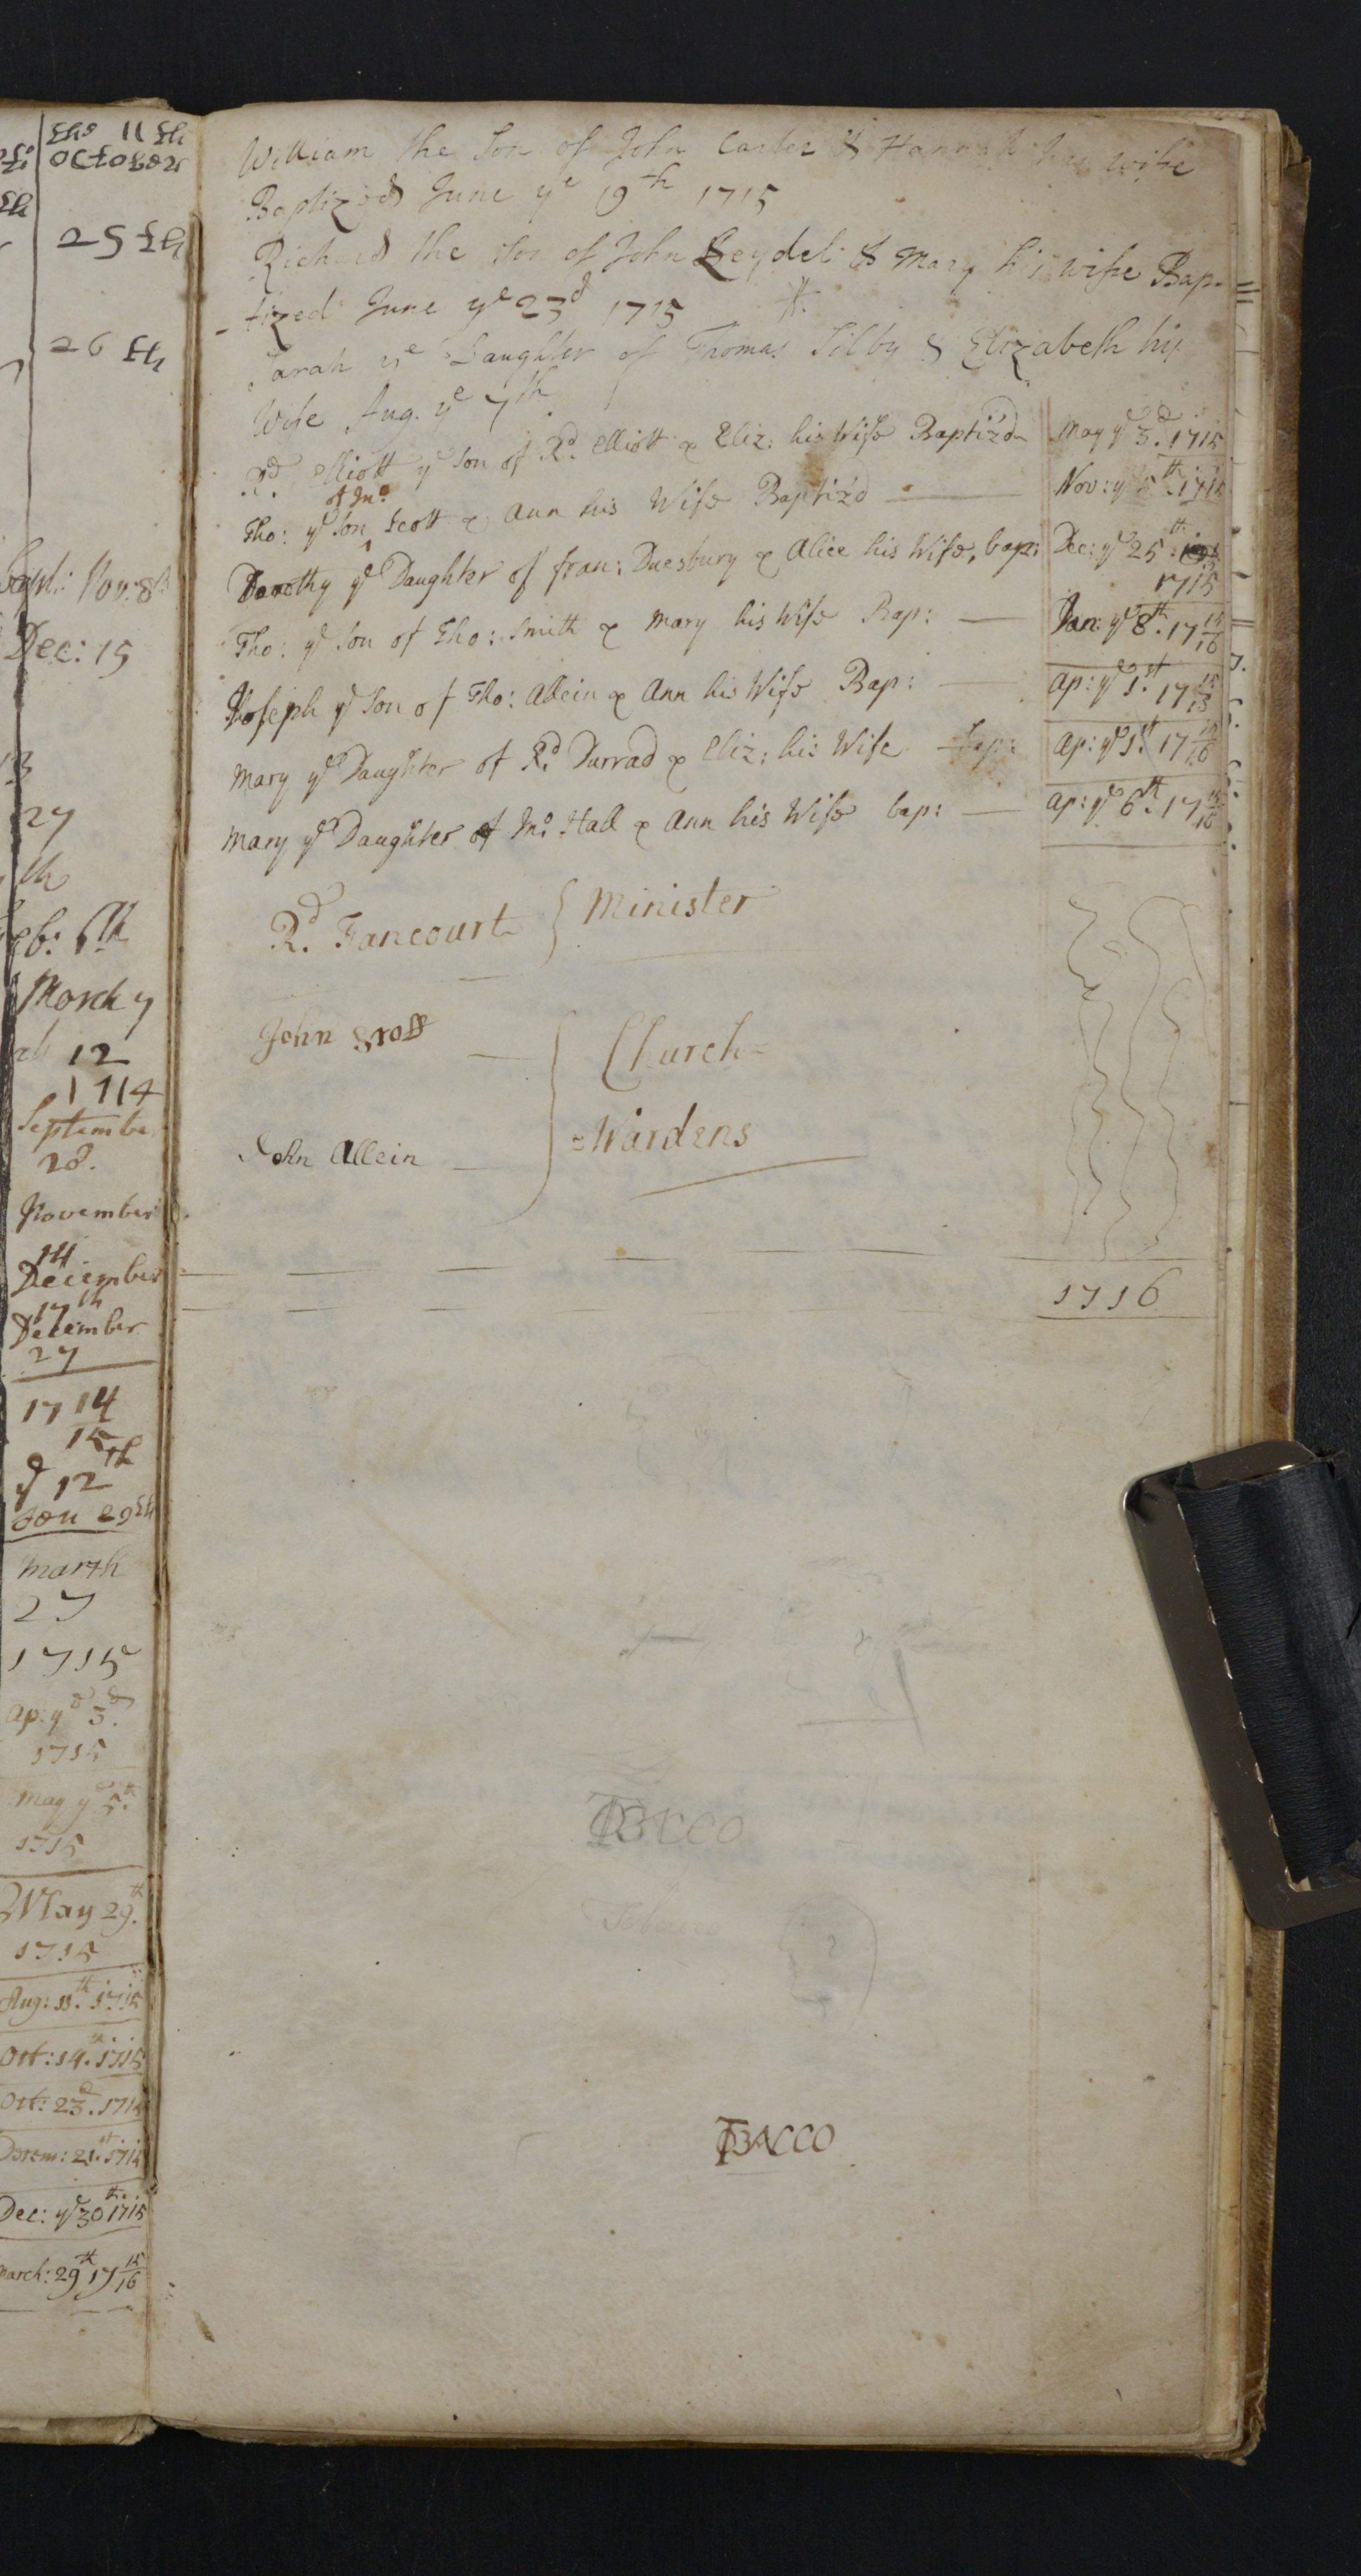 the 11 th
October
25 th
26 th
Nov: 8th
Dec: 15
27
th
6th
March 7
12
1714
September
28.
November
14
December
17th
December
27
1714
15
ye 12th
29th
march
27
1715
Ap: ye 3d.
1715
May ye 5th.
1715
May 29th.
1715
Aug: 11th. 1715
Oct: 14th. 1715
Oct: 23d. 1715
Decem: 21st. 1715
Dec: ye 30th 1715
March: 29th 17 15/16
William the Son of John Carter & Hannah his wife
Baptized June ye 19th 1715
Richard the Son of John & Mary his wife Bap-
-tized June ye 23d 1715
Sarah ye Daughter of Thomas Silby & Elizabeth his
Wife Aug. ye 7th
Rd. Elliott ye Son of Rd. Elliott & Eliz: his Wife Baptiz'd May ye 3d. 1715
of Jno.
Tho: ye Son Scott & Ann his Wife Baptiz'd Nov: ye th. 1715
Dorothy ye Daughter of Fran: Duesbury & Alice his Wife, bap: Dec: ye 25th.
1715
Tho: ye Son of Tho: Smith & Mary his Wife Bap: Jan: ye 8th. 17 15/16
Joseph ye Son of Tho: Allein & Ann his Wife Bap: Ap: ye 1st 17
Mary ye Daughter of Rd. Durrad & Eliz: his Wife Bap: Ap: ye 1st. 17 15/16
Mary ye Daughter of Jno. Hall & Ann his Wife bap: Ap: ye 6th. 17 15/16
Rd. Fancourt } Minister
John } Church=
John Allein =Wardens
1716
TOBACCO
Tobacco
TOBACCO